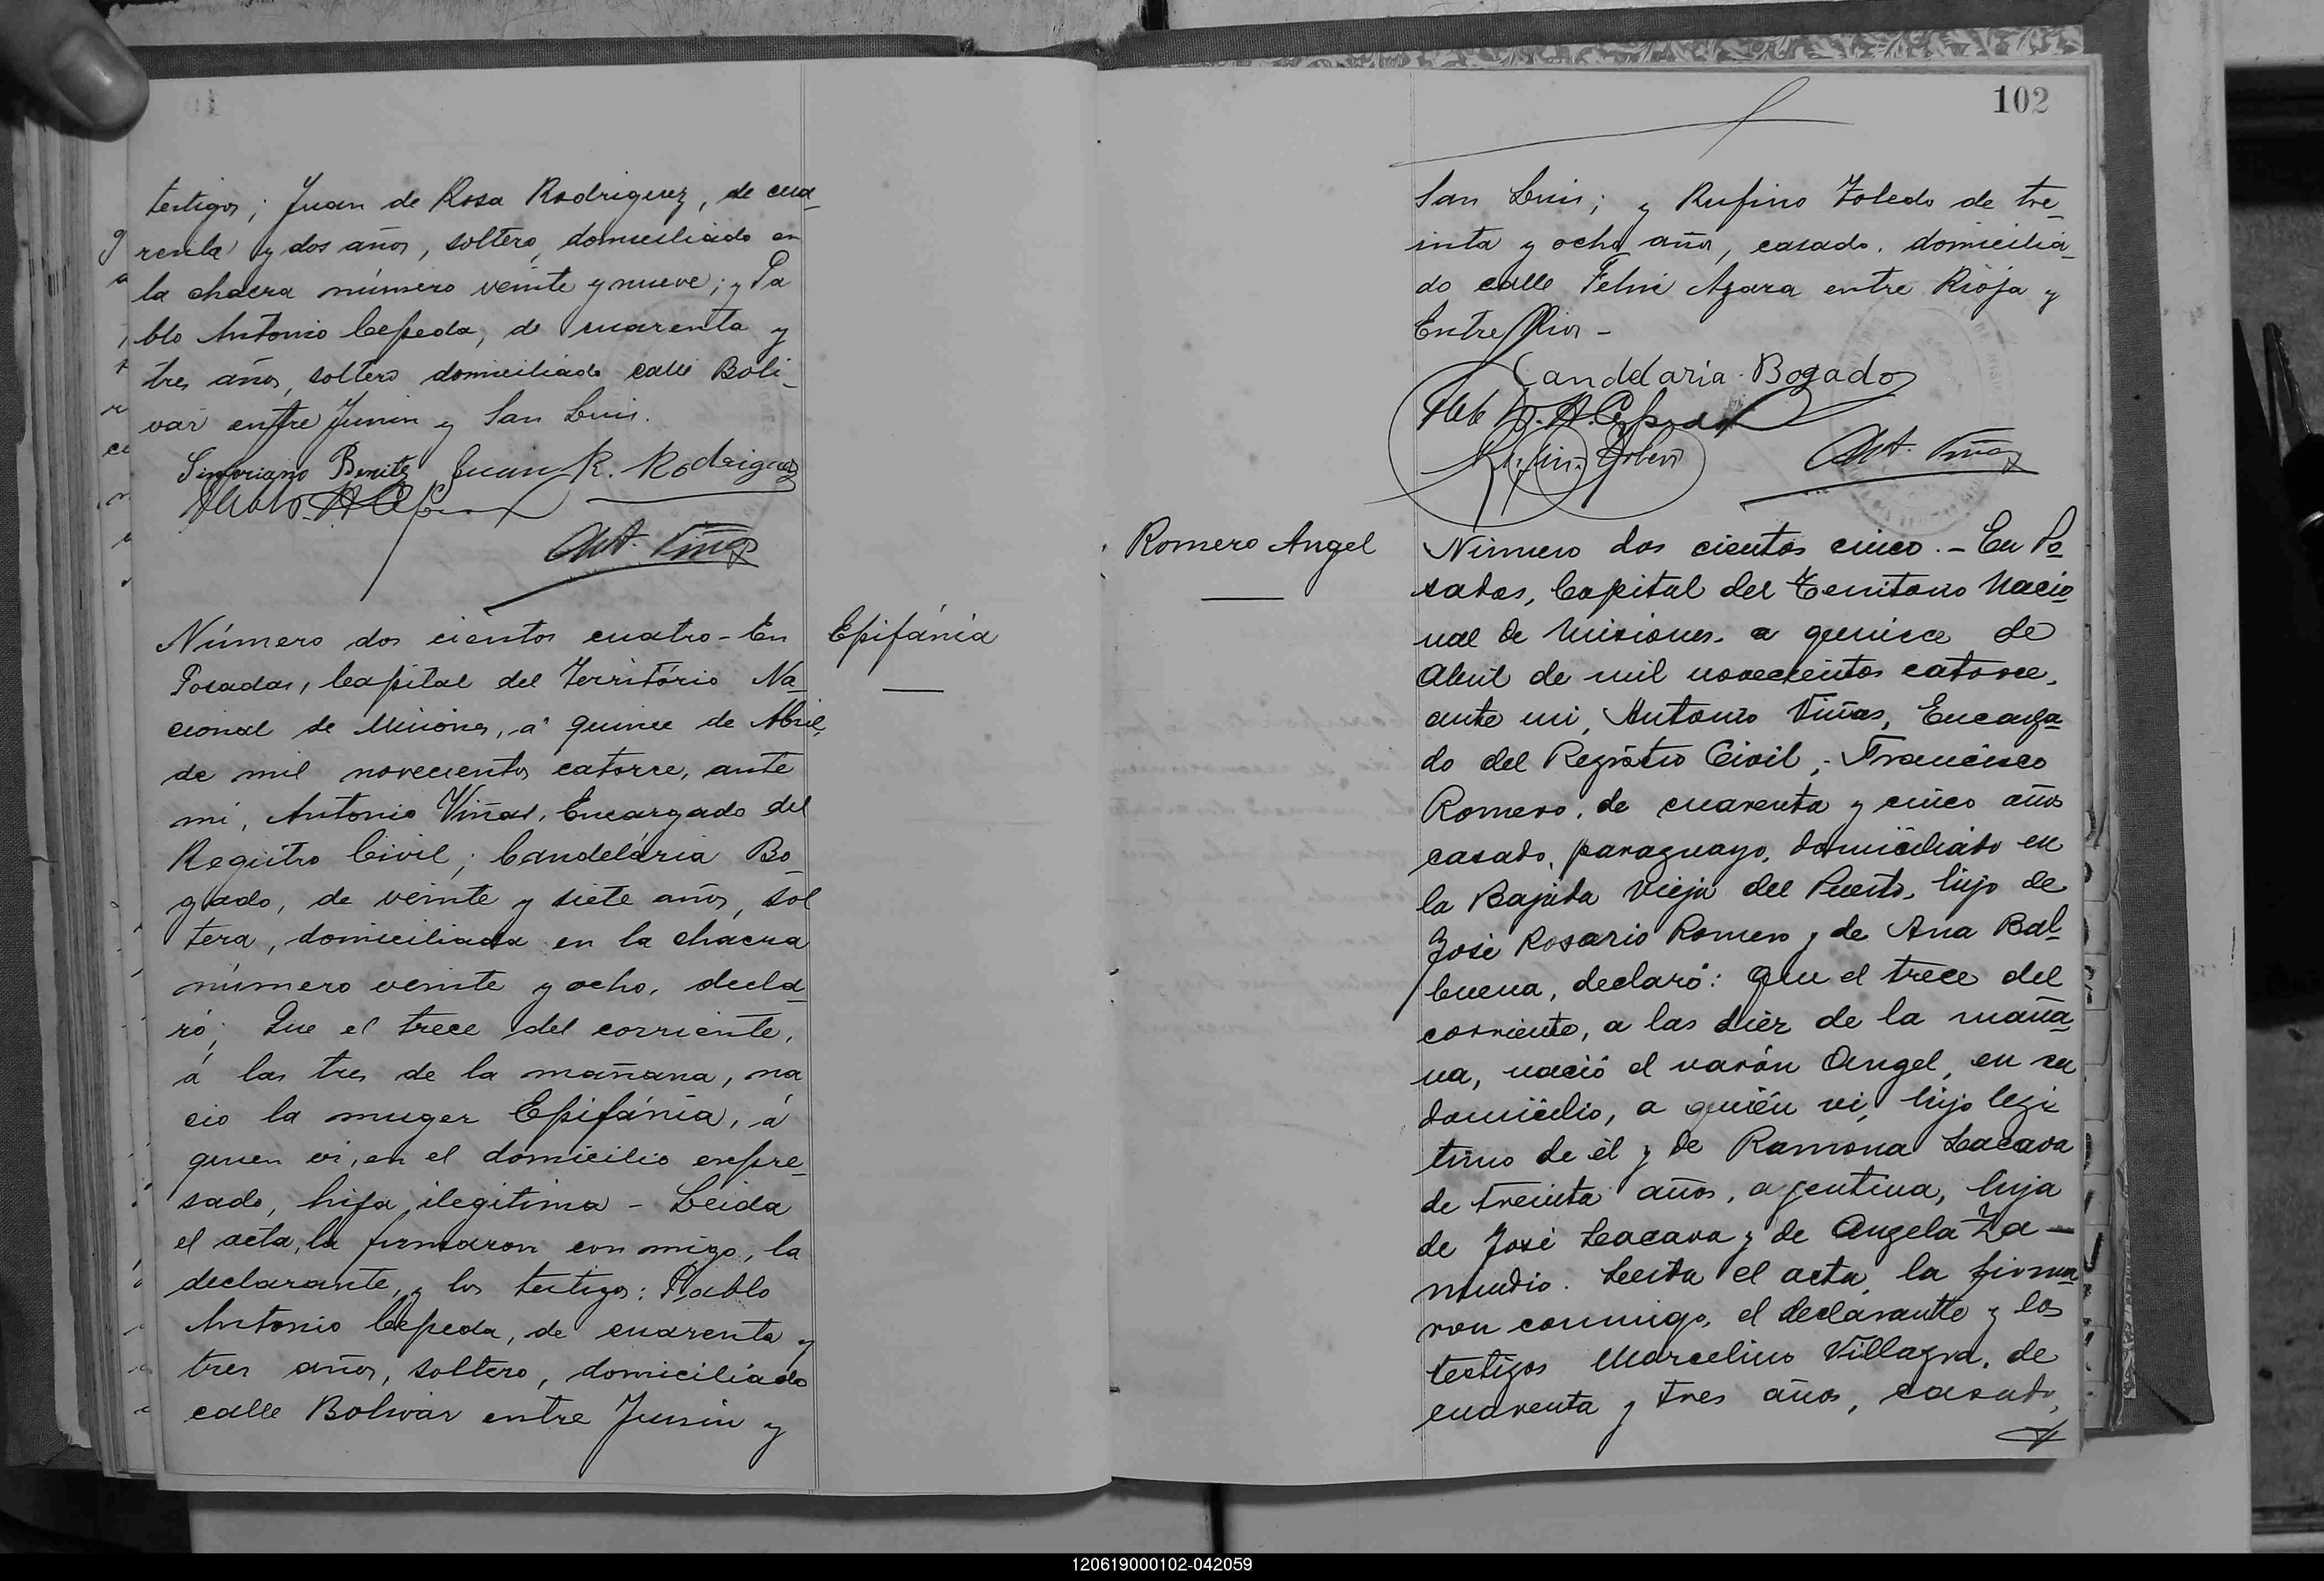 testigos; Juan de Rosa Rodriguez, de cua_
renta y dos años, soltero, domiciliado en
la chacra número veinte y nueve; y Pa
blo Antonio Cepeda, de cuarenta y
tres años, soltero domiciliado calle Boli_
var entre Junin y San Luis.
Sinforiano Benitez Juan R. Rodriguez
Ant. Viñas
Número dos cientos cuatro - En
Epifánia
Posadas, Capital del Território Na_
cional de Misiones, á quince de Abril,
de mil novecientos catorce, ante
mi, Antonio Viñas, Encargado del
Registro Civil; Candelária Bo_
gado, de veinte y siete años, sol
tera, domiciliada en la chacra
número veinte y ocho, decla_
ró; Que el trece del corriente,
á las tres de la mañana, na
cio la muger Epifánia, á
quien vi, en el domicilio expre_
sado, hija ilegitima - Leida
el acta, la firmaron con migo, la
declarante, y los testigos: Pablo
Antonio Cepeda, de cuarenta y
tres años, soltero, domiciliado
calle Bolivar entre Junin y
102
San Luis; y Rufino Toledo de tre_
inta y ocho años, casado, domicilia_
do calle Felix Azara entre Rioja y
Entre Rios -
Candelaria Bogado
Ant. Viñas
Romero Angel
Número dos cientos cinco. - En Po_
sadas, Capital del Territorio Nacio_
nal de Misiones, a quince de
Abril de mil novecientos catorce,
ante mi, Antonio Viñas, Encarga_
do del Registro Civil; Francisco
Romero, de cuarenta y cinco años
casado, paraguayo, domiciliado en
la Bajada Vieja del Puerto, hijo de
José Rosario Romero y de Ana Bal_
buena, declaró: Que el trece del
corriente, a las diéz de la maña_
na, nació el varón Angel, en su
domicilio, a quién vi, hijo legi
timo de él y de Ramona Lacava
de treinta años, argentina, hija
de José Lacava y de Angela Za -
mudio. Leida el acta, la firma
ron conmigo, el declarante y los
testigos Marcelino Villagra, de
cuarenta y tres años, casado,
120619000102-042059